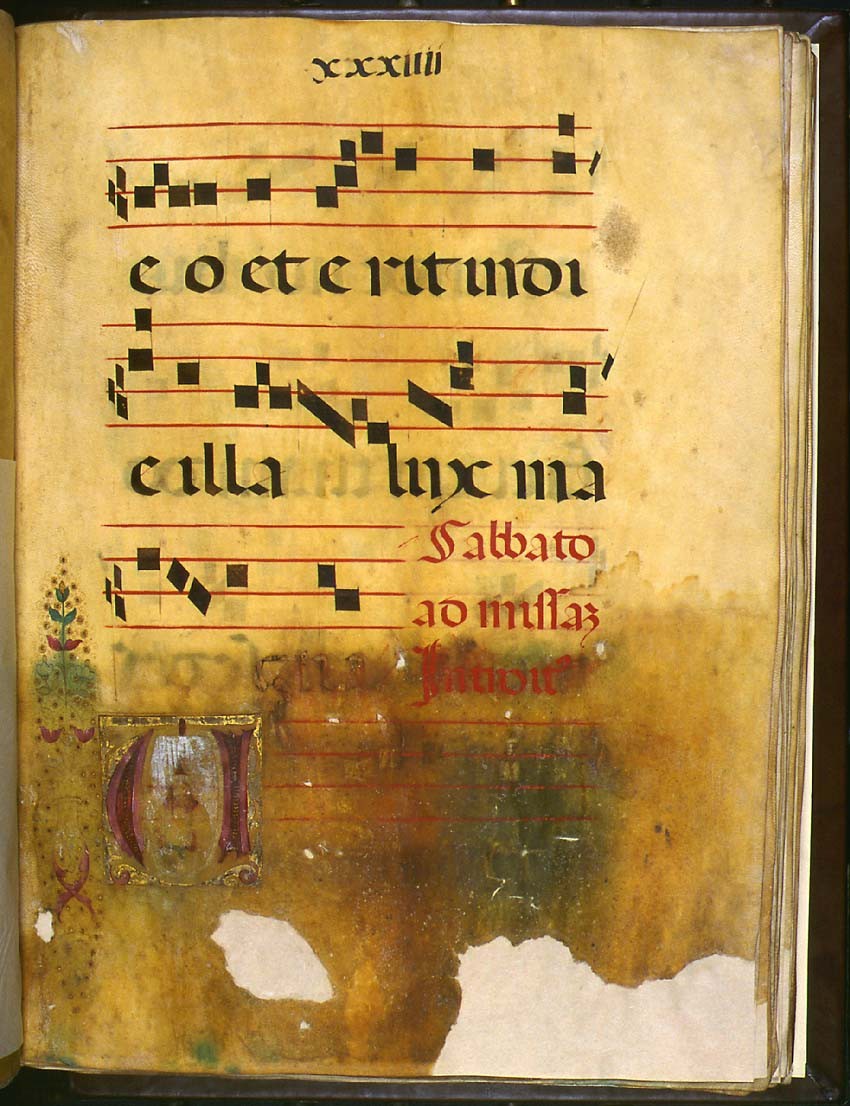 xxxiiii
e o et e rit in di
e illa lux ma
Sabbato
ad missaz
Introit⁹